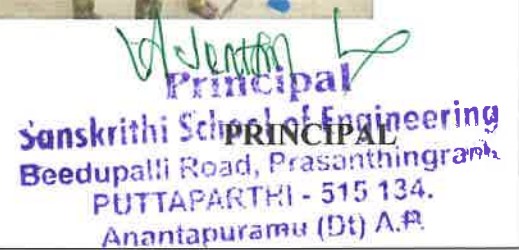 Principal
Sanskrithi School of Engineering
PRINCIPAL
Beedupalli Road, Prasanthingram
PUTTAPARTHI - 515 134.
Anantapuramu (Dt) A.P.